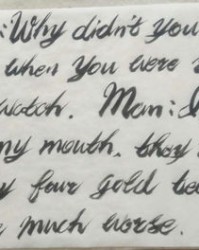 :Why didn't you
when you were
watch. Man: I
my mouth. they
four gold tee
much worse.